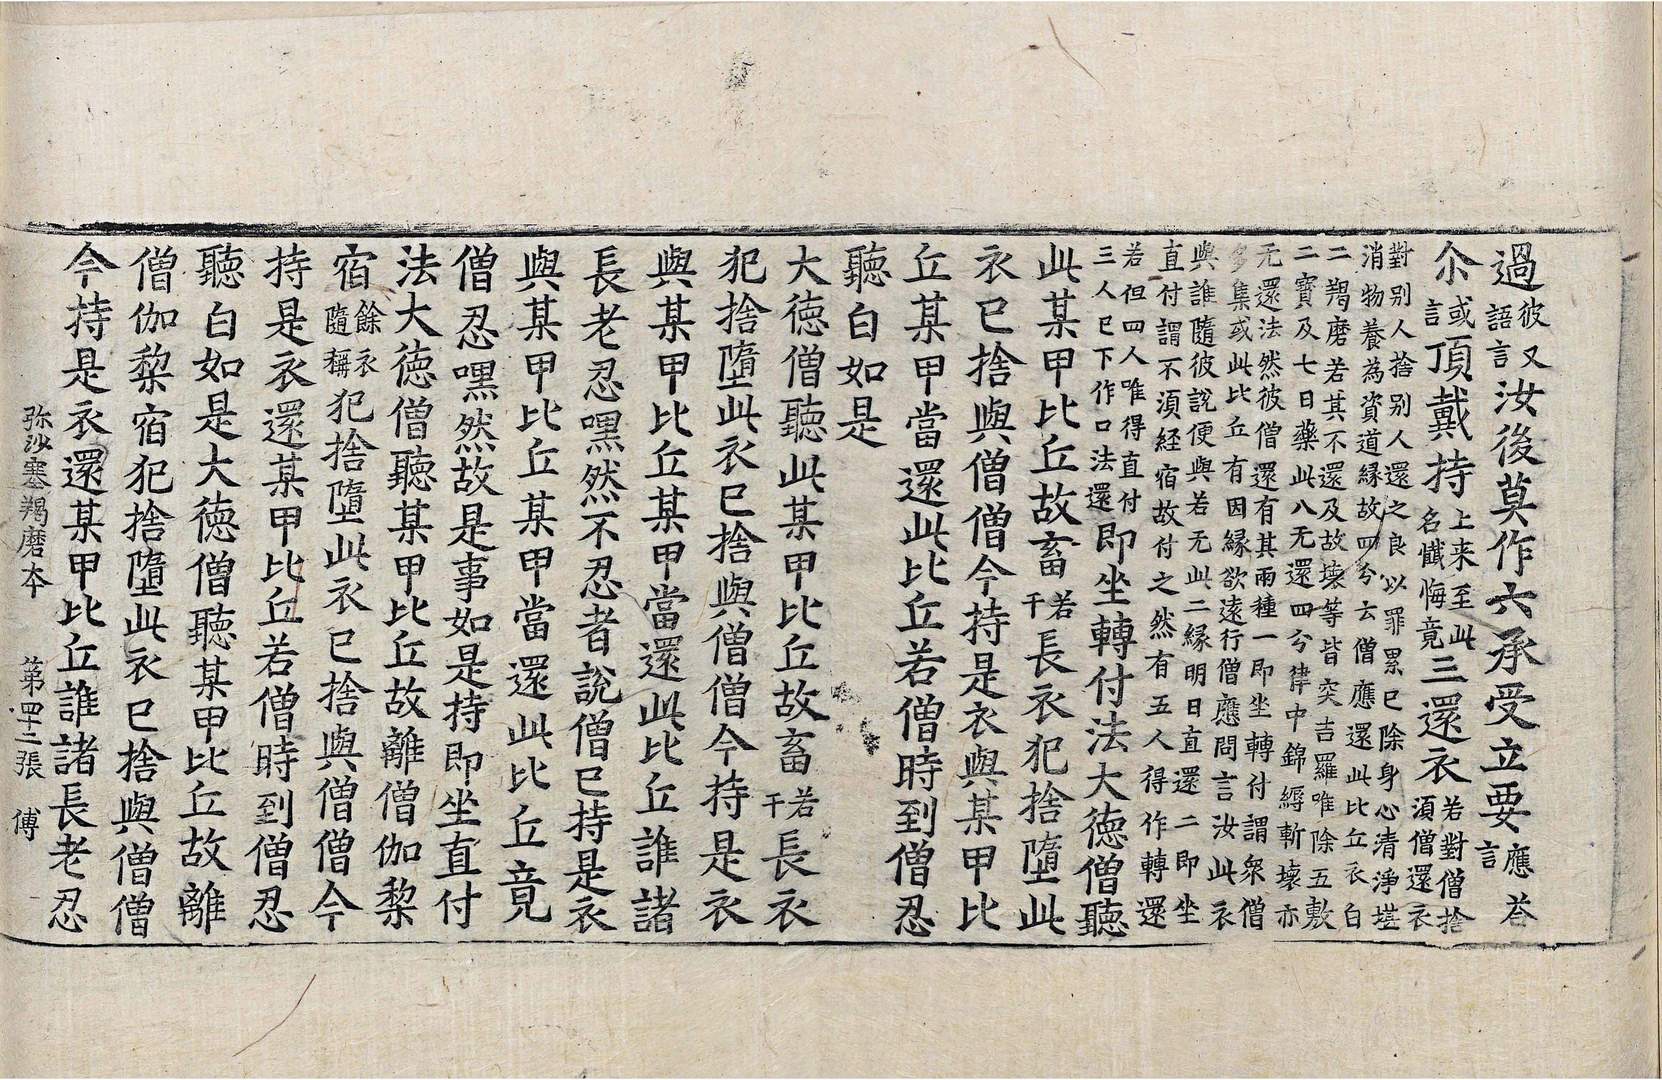 過彼又語言汝後莫作六承受立要應荅言
尒或言頂戴持上来至此名懺悔竟三還衣若對僧捨湏僧還衣
對别人捨别人還之良以罪累已除身心清淨堪
消物養為資道縁故四兮云僧應還此比丘衣白
二羯磨若其不還及故壊等皆突吉羅唯除五敷
二寳及七日藥此八无還四兮律中錦縟斬壊亦
无還法然彼僧還有其兩種一即坐轉付謂衆僧
多集或此比丘有因縁欲逺行僧應問言汝此衣
與誰隨彼說便與若无此二縁明日直還二即坐
直付謂不湏経宿故付之然有五人得作轉還
若但四人唯得直付三人已下作口法還即坐轉付法大徳僧聽
此某甲比丘故畜若干長衣犯捨墮此
衣已捨與僧僧今持是衣與某甲比
丘某甲當還此比丘若僧時到僧忍
聽白如是
大徳僧聽此某甲比丘故畜若干長衣
犯捨墮此衣已捨與僧僧今持是衣
與某甲比丘某甲當還此比丘誰諸
長老忍嘿然不忍者說僧已持是衣
與某甲比丘某甲當還此比丘竟
僧忍嘿然故是事如是持即坐直付
法大徳僧聽某甲比丘故離僧伽梨
宿餘衣隨稱犯捨墮此衣已捨與僧僧今
持是衣還某甲比丘若僧時到僧忍
聽白如是大徳僧聽某甲比丘故離
僧伽梨宿犯捨墮此衣已捨與僧僧
今持是衣還某甲比丘誰諸長老忍
弥沙塞羯磨本 第四十二張 傅